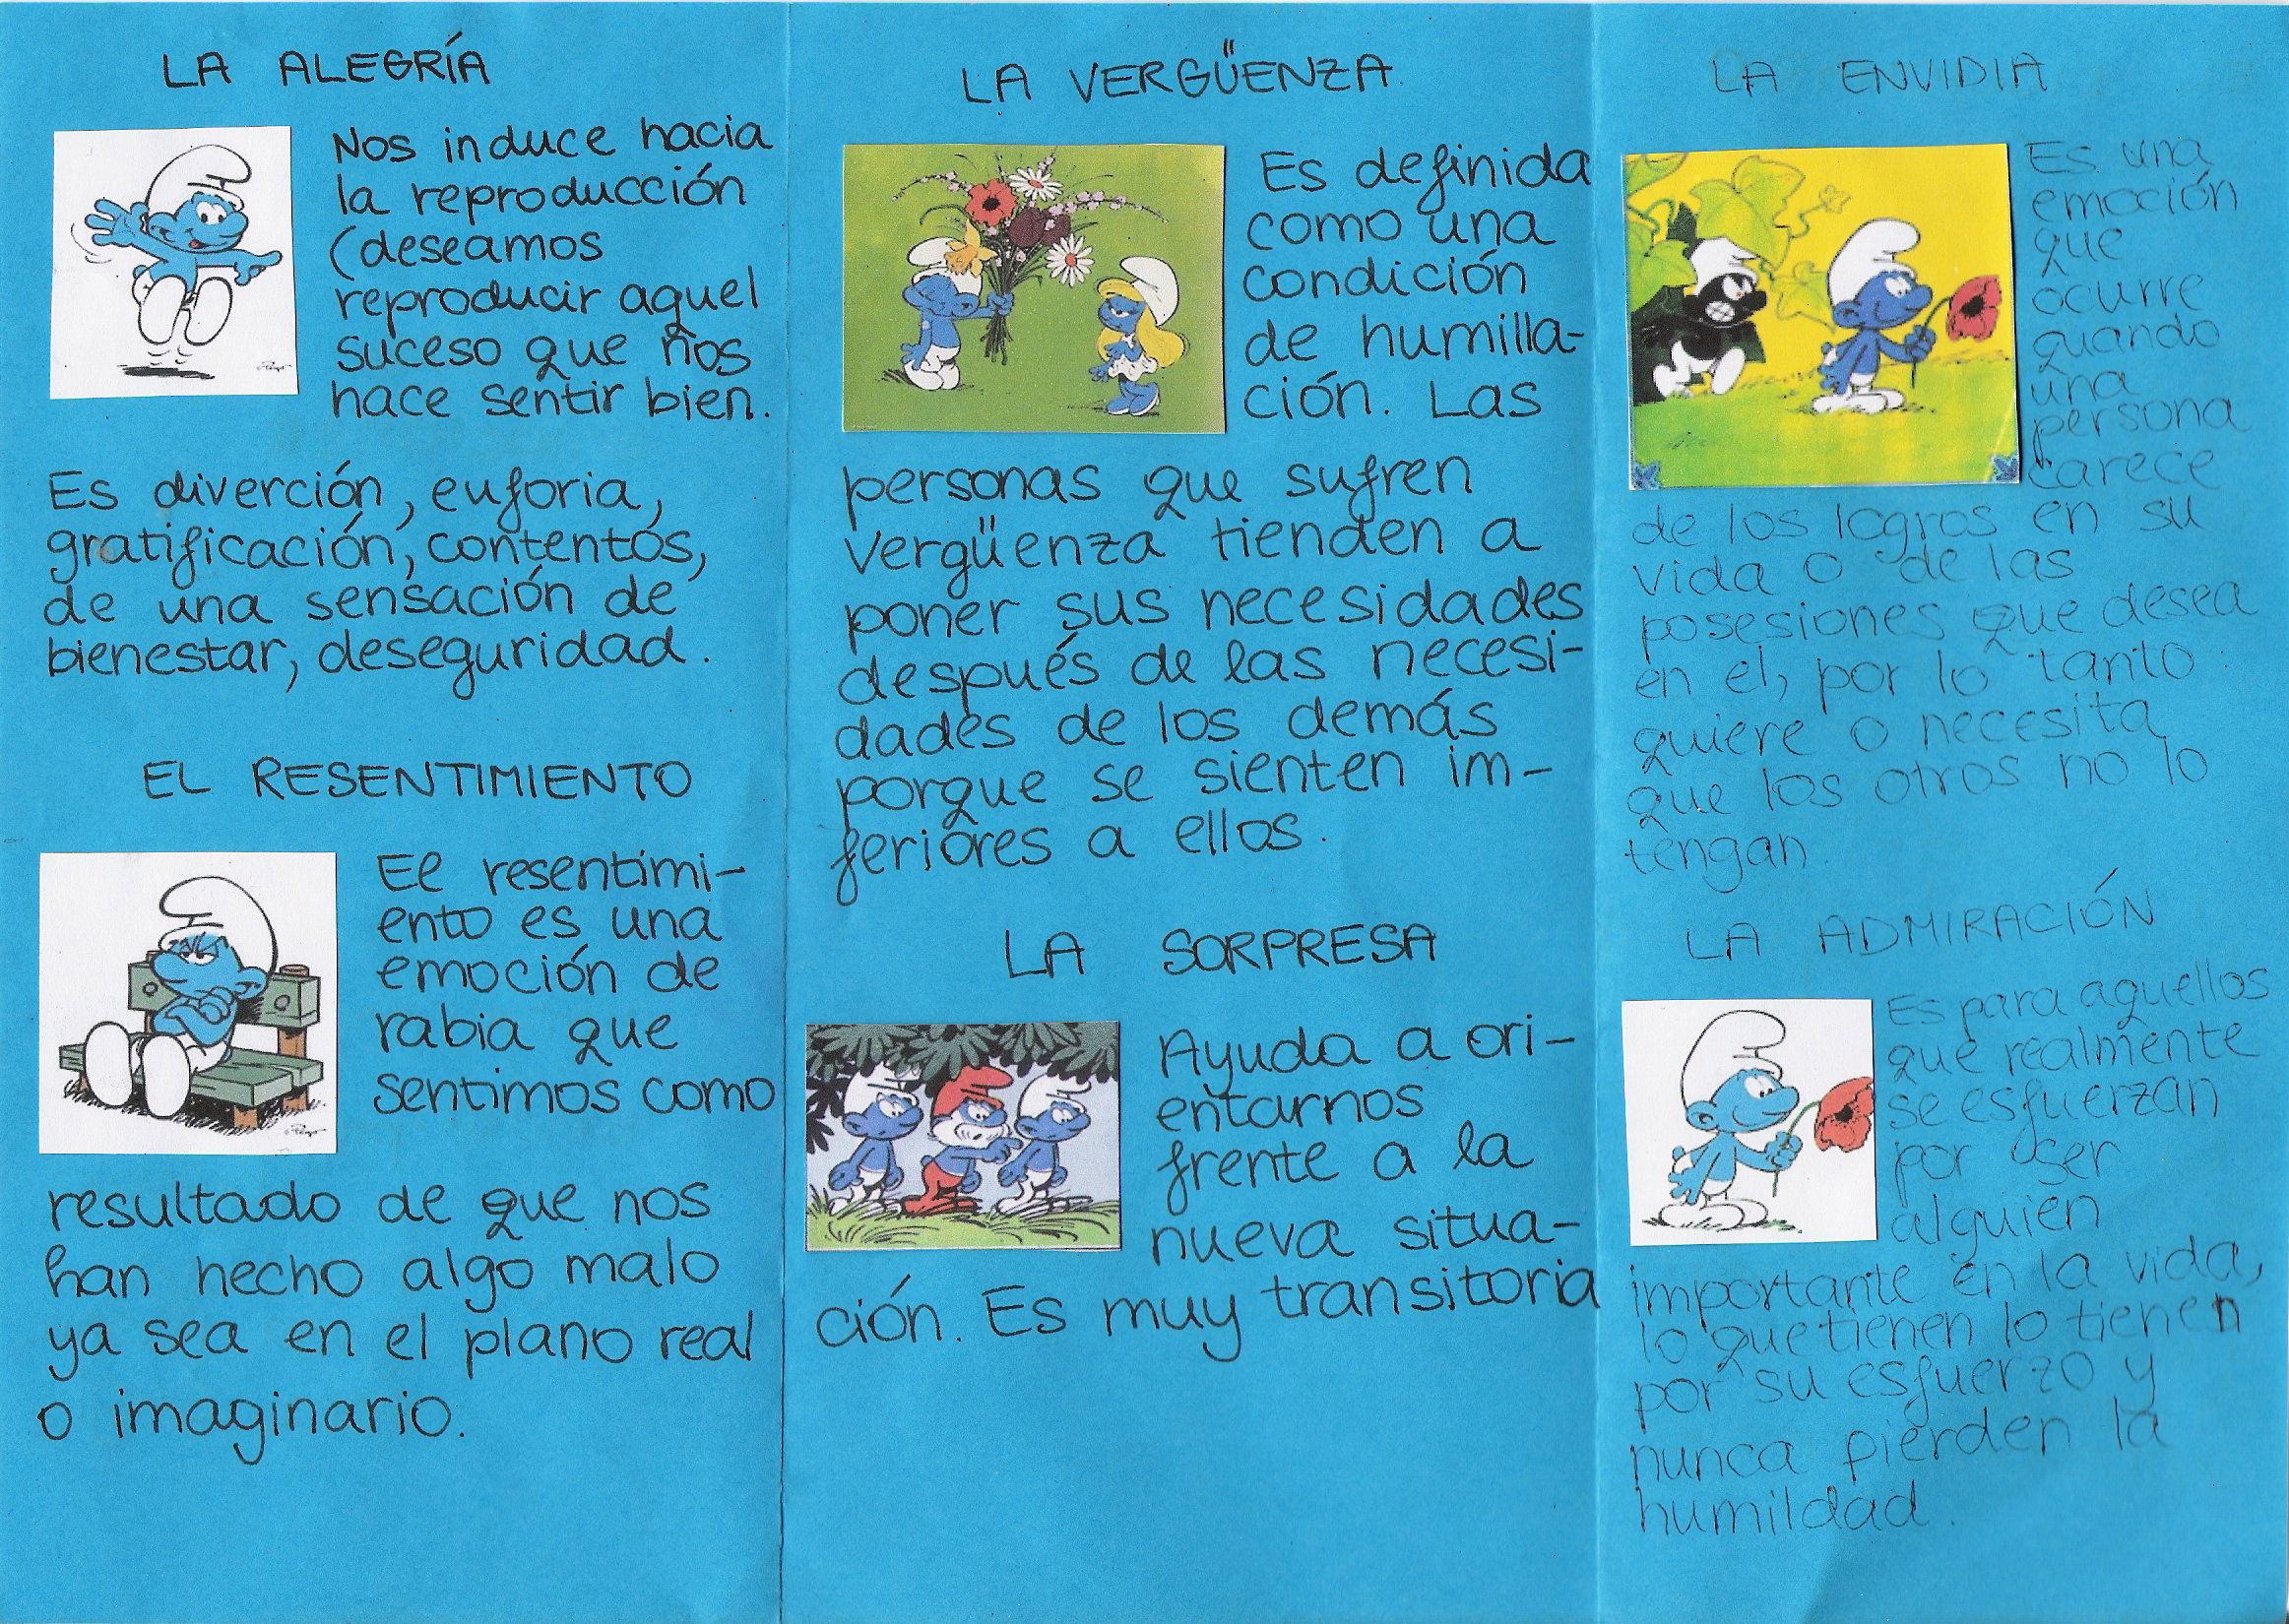 LA ALEGRÍA
Nos induce hacia
la reproducción
(deseamos
reproducir aquel
suceso que nos
hace sentir bien.
Es diverción, euforia,
gratificación, contentos,
de una sensación de
bienestar, deseguridad.
EL RESENTIMIENTO
El resentimi-
ento es una
emoción de
rabia que
sentimos como
resultado de que nos
han hecho algo malo
ya sea en el plano real
o imaginario.
LA VERGÜENZA
Es definida
como una
condición
de humilla-
ción. Las
personas que sufren
vergüenza tienden a
poner sus necesidades
después de las necesi-
dades de los demás
porque se sienten im-
feriores a ellos.
LA SORPRESA
Ayuda a ori-
entarnos
frente a la
nueva situa-
ción. Es muy transitoria
LA ENVIDIA
Es una
emoción
que
ocurre
quando
una
persona
carece
de los logros en su
vida o de las
posesiones que desea
en el, por lo tanto
quiere o necesita
que los otros no lo
tengan.
LA ADMIRACIÓN
Es para aquellos
que realmente
se esfuerzan
por ser
alguien
importante en la vida,
lo que tienen lo tienen
por su esfuerzo y
nunca pierden la
humildad.